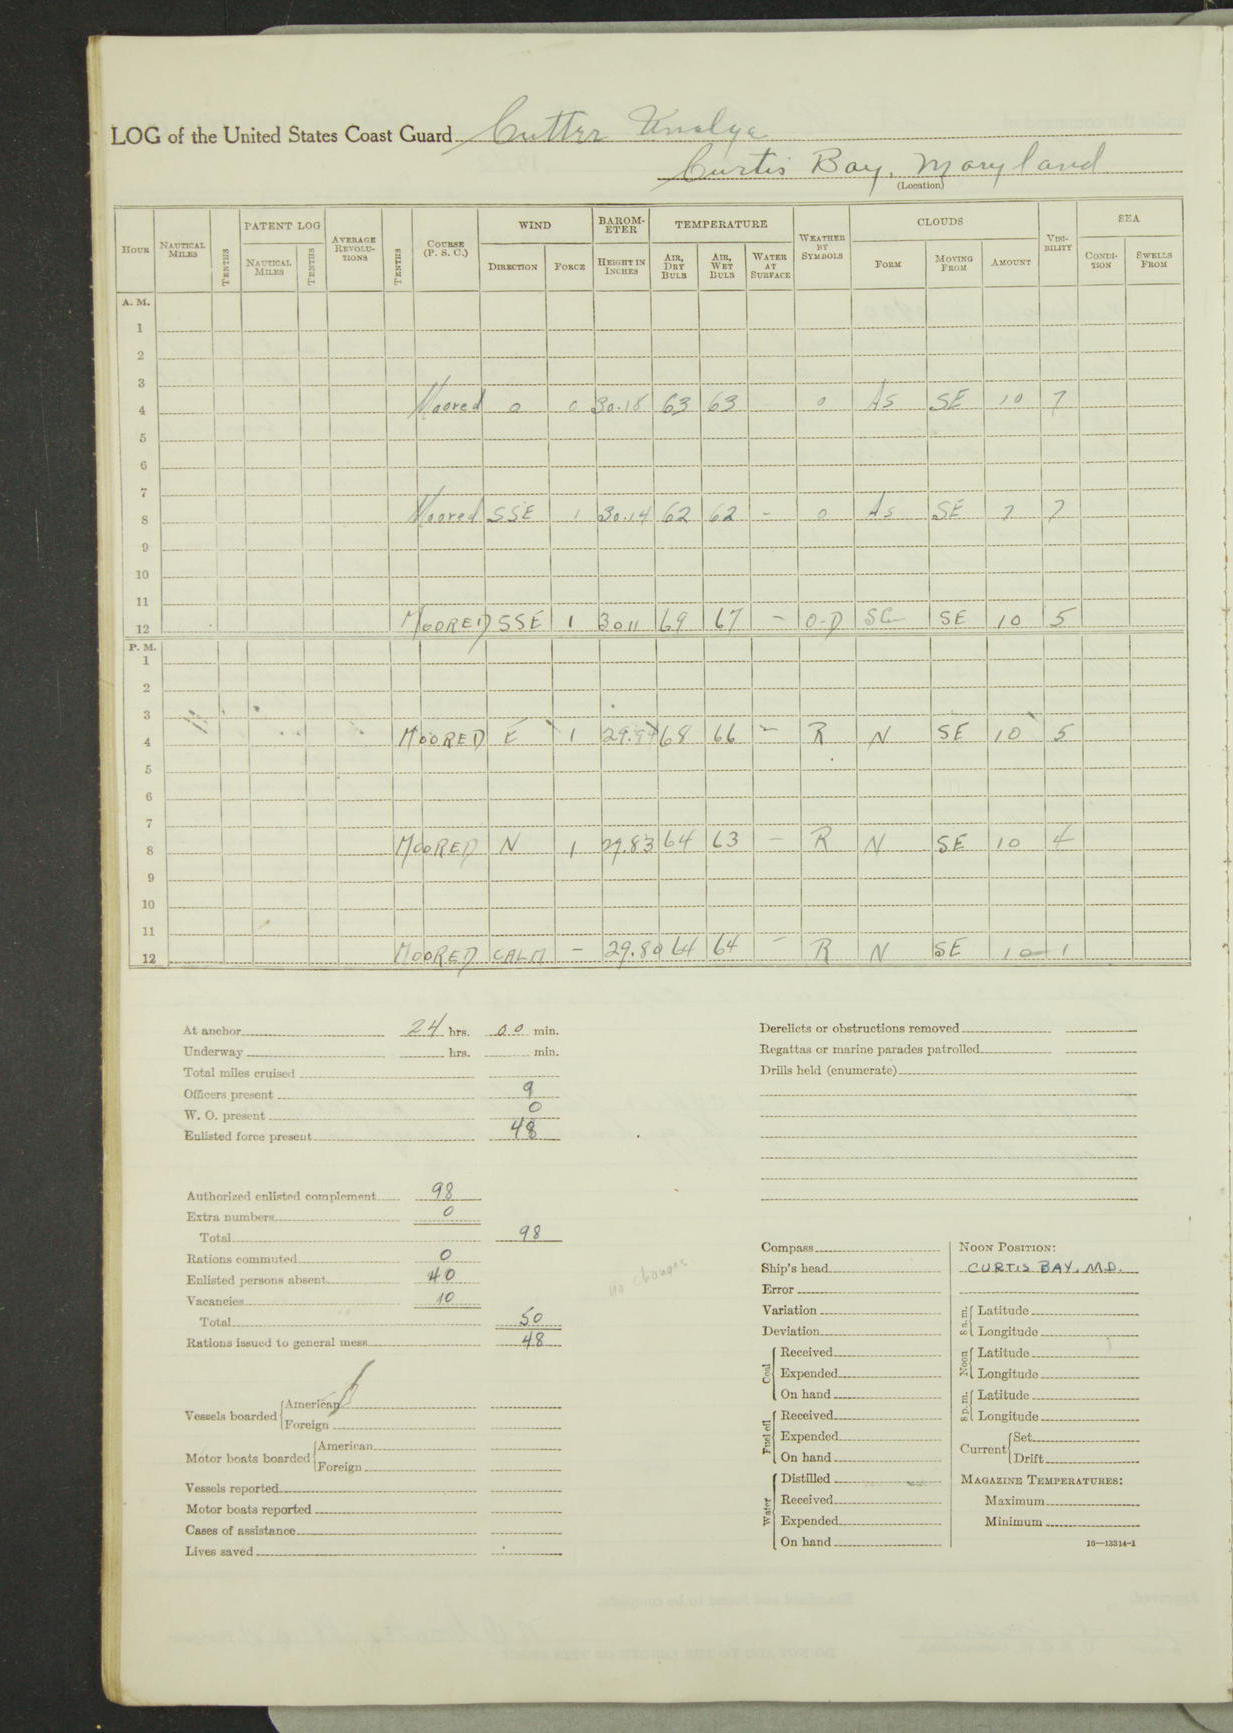 LOG of the United States Coast Guard Cutter Unalga
Curtis Bay, Maryland
(Location)
HOUR NAUTICAL MILES TENTHS PATENT LOG NAUTICAL MILES TENTHS AVERAGE REVOLUTIONS TENTHS COURSE (P. S. C.) WIND DIRECTION FORCE BAROMETER HEIGHT IN INCHES TEMPERATURE AIR, DRY BULB AIR, WET BULB WATER AT SURFACE WEATHER BY SYMBOLS CLOUDS FORM MOVING FROM AMOUNT VISIBILITY SEA CONDITION SWELLS FROM
A. M.
1
2
3
4 Moored 0 0 30.18 63 63 - 0 As SE 10 7
5
6
7
8 Moored SSE 1 30.14 62 62 - 0 As SE 7 7
9
10
11
12 MOORED SSE 1 3011 69 67 - O-D SC SE 10 5
P. M.
1
2
3
4 MOORED E 1 68 66 - R N SE 10 5
5
6
7
8 MOORED N 1 29.83 64 63 - R N SE 10 4
9
10
11
12 MOORED CALM - 29.80 64 64 - R N SE 10 1
At anchor 24 hrs. 00 min.
Underway hrs. min.
Total miles cruised
Officers present 9
W. O. present 0
Enlisted force present 48
Authorized enlisted complement 98
Extra numbers 0
Total 98
Rations commuted 0
Enlisted persons absent 40
Vacancies 10
Total 50
Rations issued to general mess 48
no changes
Vessels boarded American
Foreign
Motor boats boarded American
Foreign
Vessels reported
Motor boats reported
Cases of assistance
Lives saved
Derelicts or obstructions removed
Regattas or marine parades patrolled
Drills held (enumerate)
Compass
Ship's head
Error
Variation
Deviation
Coal Received
Expended
On hand
Fuel oil Received
Expended
On hand
Water Distilled
Received
Expended
On hand
NOON POSITION:
CURTIS BAY, MD.
8 a. m. Latitude
Longitude
Noon Latitude
Longitude
8 p. m. Latitude
Longitude
Current Set
Drift
MAGAZINE TEMPERATURES:
Maximum
Minimum
16—13314-1